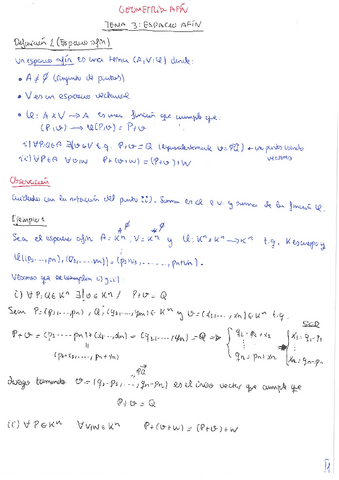 GEOMETRÍA AFÍN
TEMA 3: ESPACIO AFÍN
Definición 1 (Espacio afín)
Un espacio afín es una terna (A,V,φ) donde:
• A ≠ ∅ (conjunto de puntos)
• V es un espacio vectorial
• φ: A x V → A es una función que cumple que:
(P,v) → φ(P,v) = P+v
i) ∀P,Q∈A ∃!v∈V t.q. P+v = Q (equivalentemente v = PQ)
ii) ∀P∈A ∀v,w P+(v+w) = (P+v)+w
Observación
Cuidado con la notación del punto ii). Suma en el e.v. y suma de la función φ.
Ejemplo 1
Sea el espacio afín A = Kⁿ, V = Kⁿ y φ: Kⁿ x Kⁿ → Kⁿ t.q. K cuerpo y
Veamos que se cumplen i) y ii)
i) ∀P,Q∈Kⁿ ∃!v∈Kⁿ / P+v = Q
Sean P=(p₁,...,pₙ), Q=(q₁,...,qₙ)∈Kⁿ y v=(x₁,...,xₙ)∈Kⁿ t.q.
SCD
P+v = (p₁,...,pₙ)+(x₁,...,xₙ) = (q₁,...,qₙ) = Q ⇒
Luego tomando v = (q₁-p₁,..., qₙ-pₙ) es el único vector que cumple que
P+v = Q
ii) ∀P∈Kⁿ ∀v,w∈Kⁿ P+(v+w) = (P+v)+w